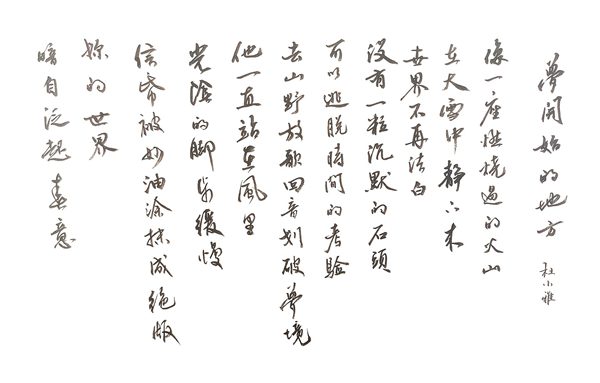 夢開始的地方
杜小雅
像一座燃燒過的火山
在大雪中靜下來
世界不再洁白
沒有一粒沉默的石頭
可以逃脫時間的考驗
去山野放歌回音划破夢境
他一直站在風里
光陰的腳步緩慢
信帋被油涂抹成絕版
妳的世界
暗自泛起春意